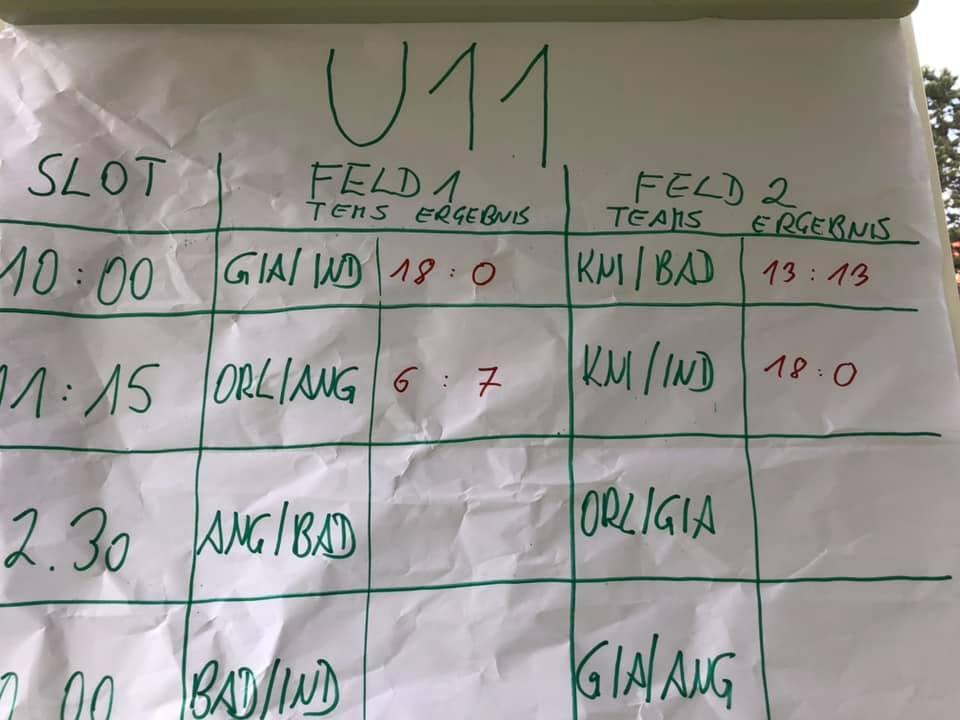 U11
SLOT FELD 1 FELD 2
TEMS ERGEBNIS TEAMS ERGEBNIS
10:00 GIA/IND 18:0 KNI/BAD 13:13
11:15 ORL/ANG 6 : 7 KNI/IND 18:0
2.30 ANG/BAD ORL/GIA
00 BAD/IND GIA/ANG